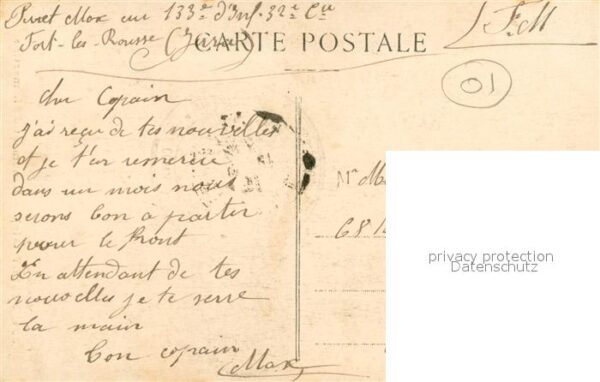 Max au 133e d'Inf. 32e Cie
Fort-les-Rousse (Jura)
CARTE POSTALE
F. M
01
cher Copain
j'ai reçu de tes nouvelles
et je t'en remercie
dans un mois nous
serons bon a partir
pour le front
En attendant de tes
nouvelles je te serre
la main
bon copain
Max
Mr
68
privacy protection
Datenschutz